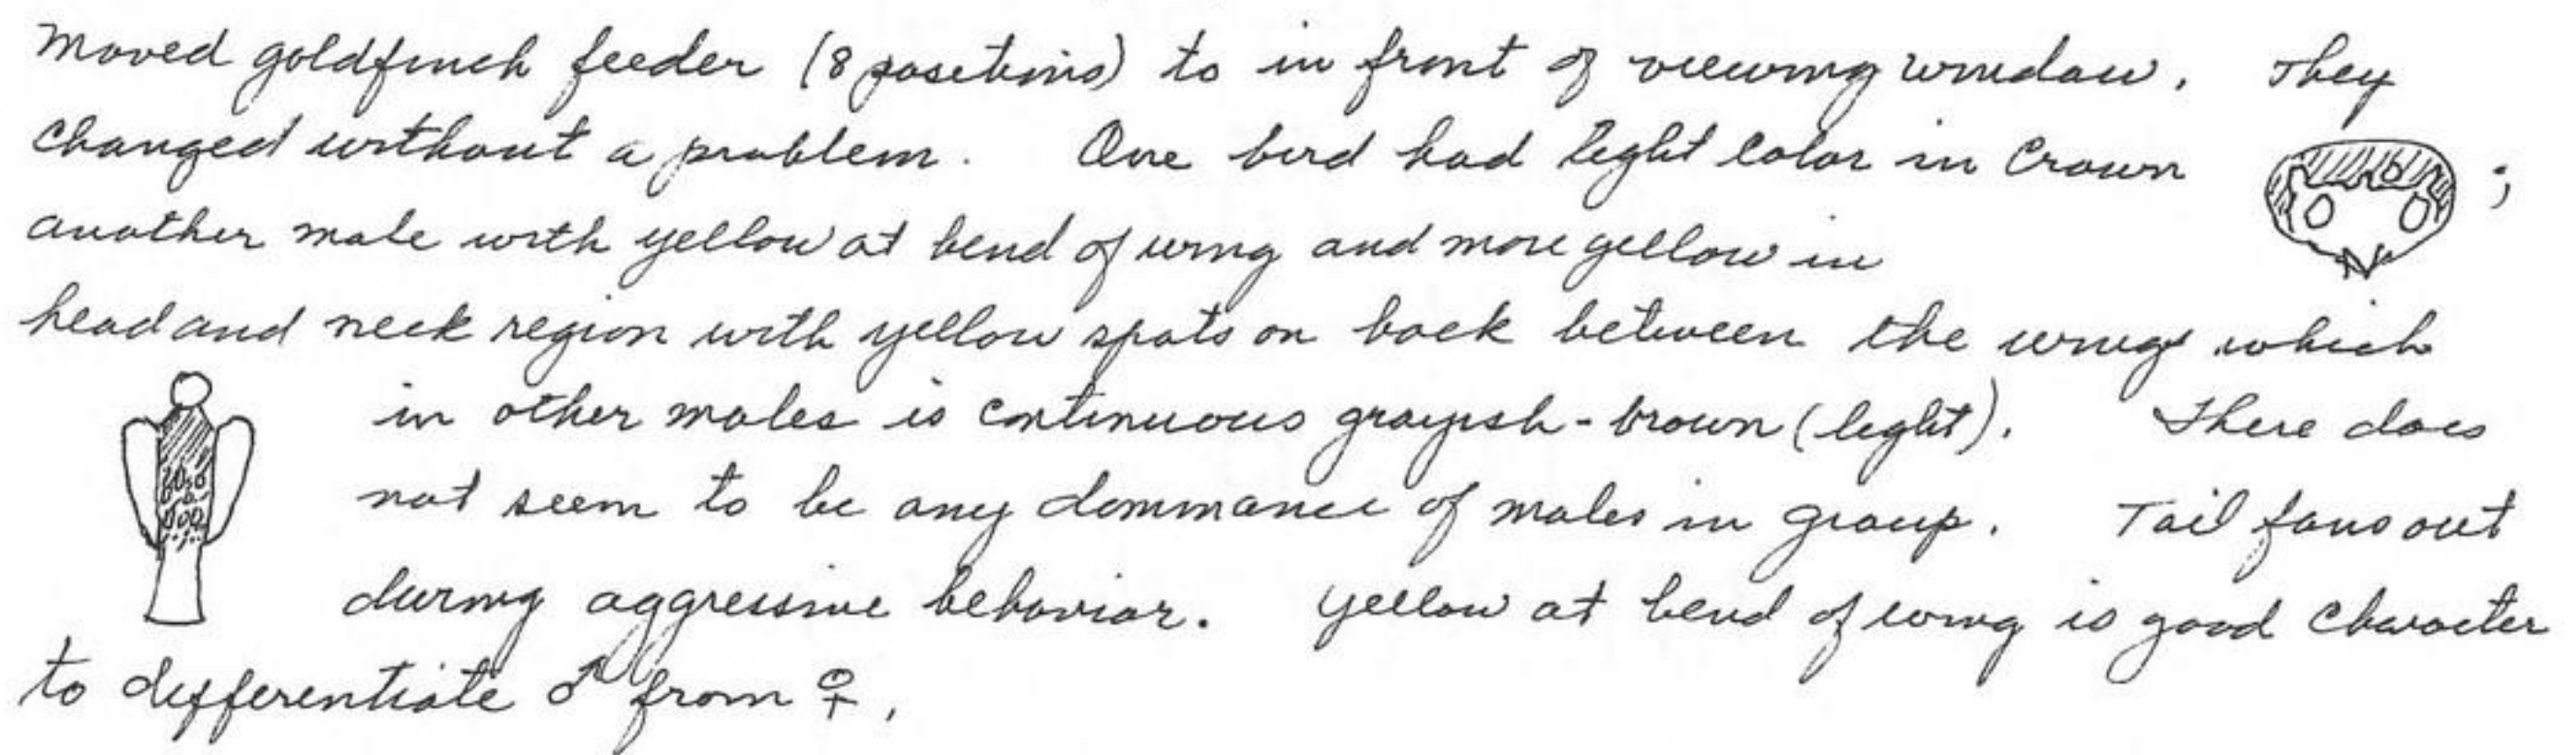 Moved goldfinch feeder (8 positions) to in front of viewing window. They
changed without a problem. One bird had light color in crown ;
another male with yellow at bend of wing and more yellow in
head and neck region with yellow spots on back between the wings which
in other males is continuous grayish-brown (light). There does
not seem to be any dominance of males in group. Tail fans out
during aggressive behavior. Yellow at bend of wing is good character
to differentiate ♂ from ♀.